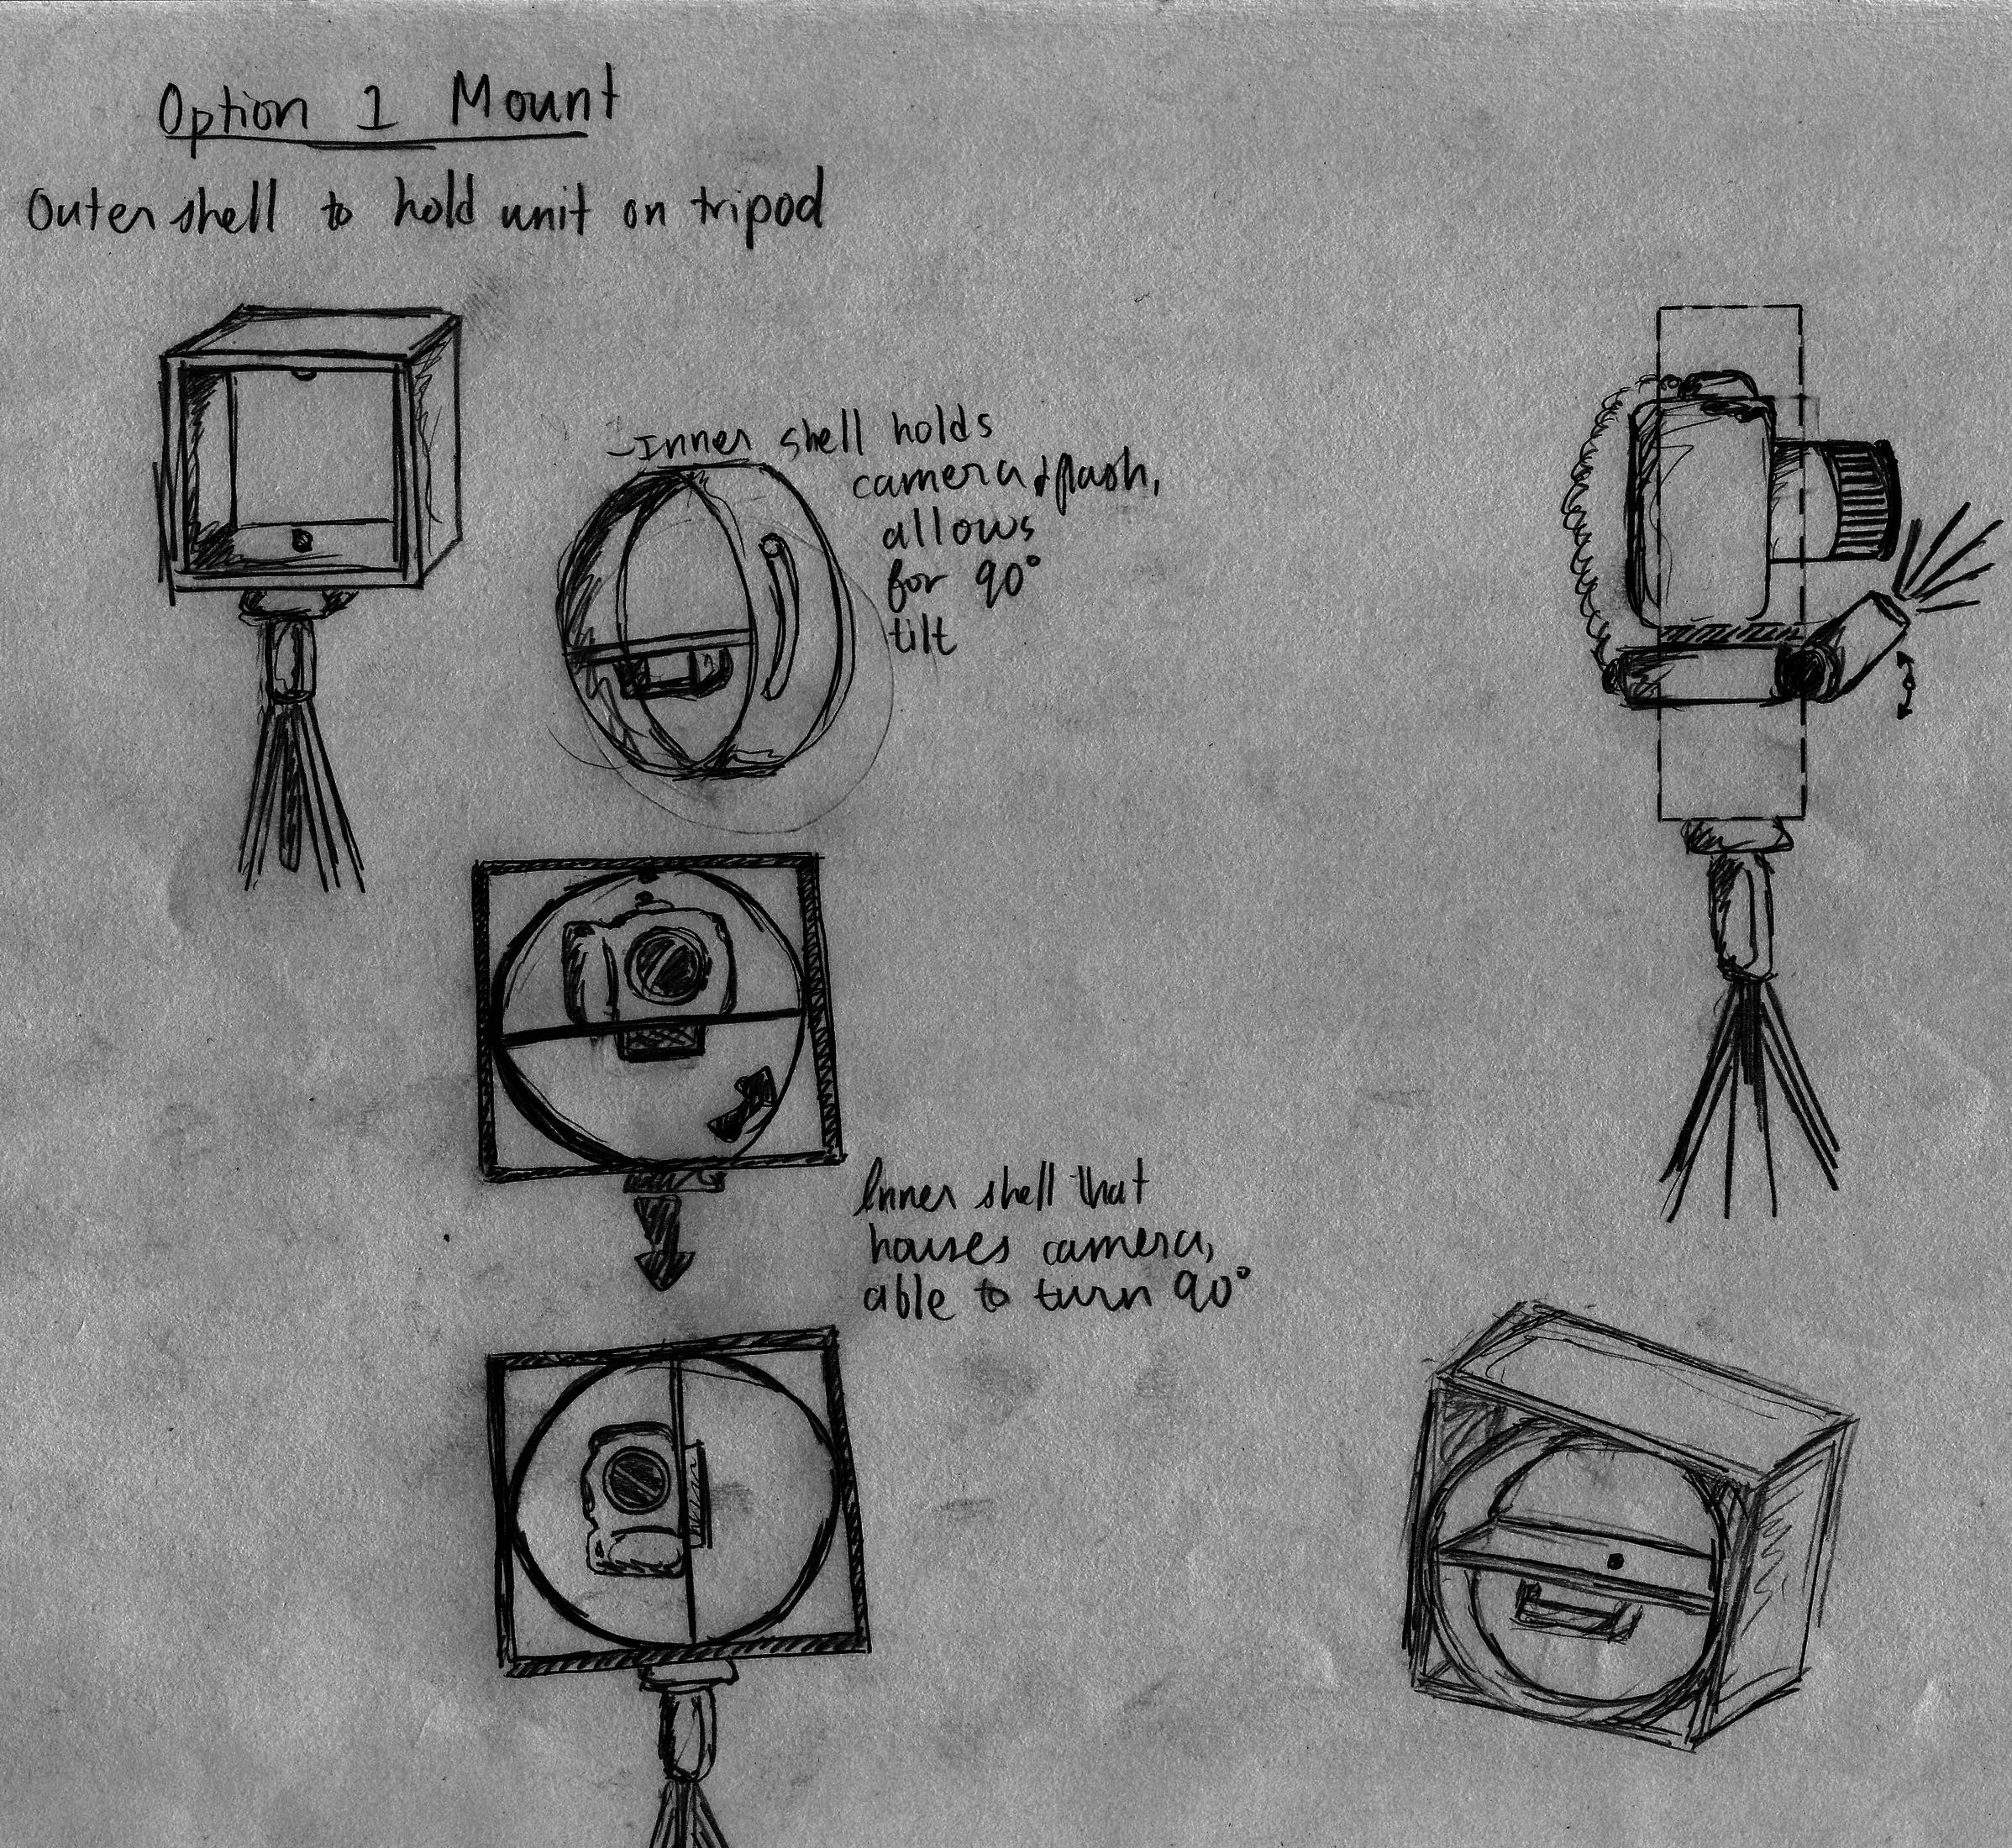 Option 1 Mount
Outer shell to hold unit on tripod
-Inner shell holds
camera & flash,
allows
for 90°
tilt
Inner shell that
houses camera,
able to turn 90°